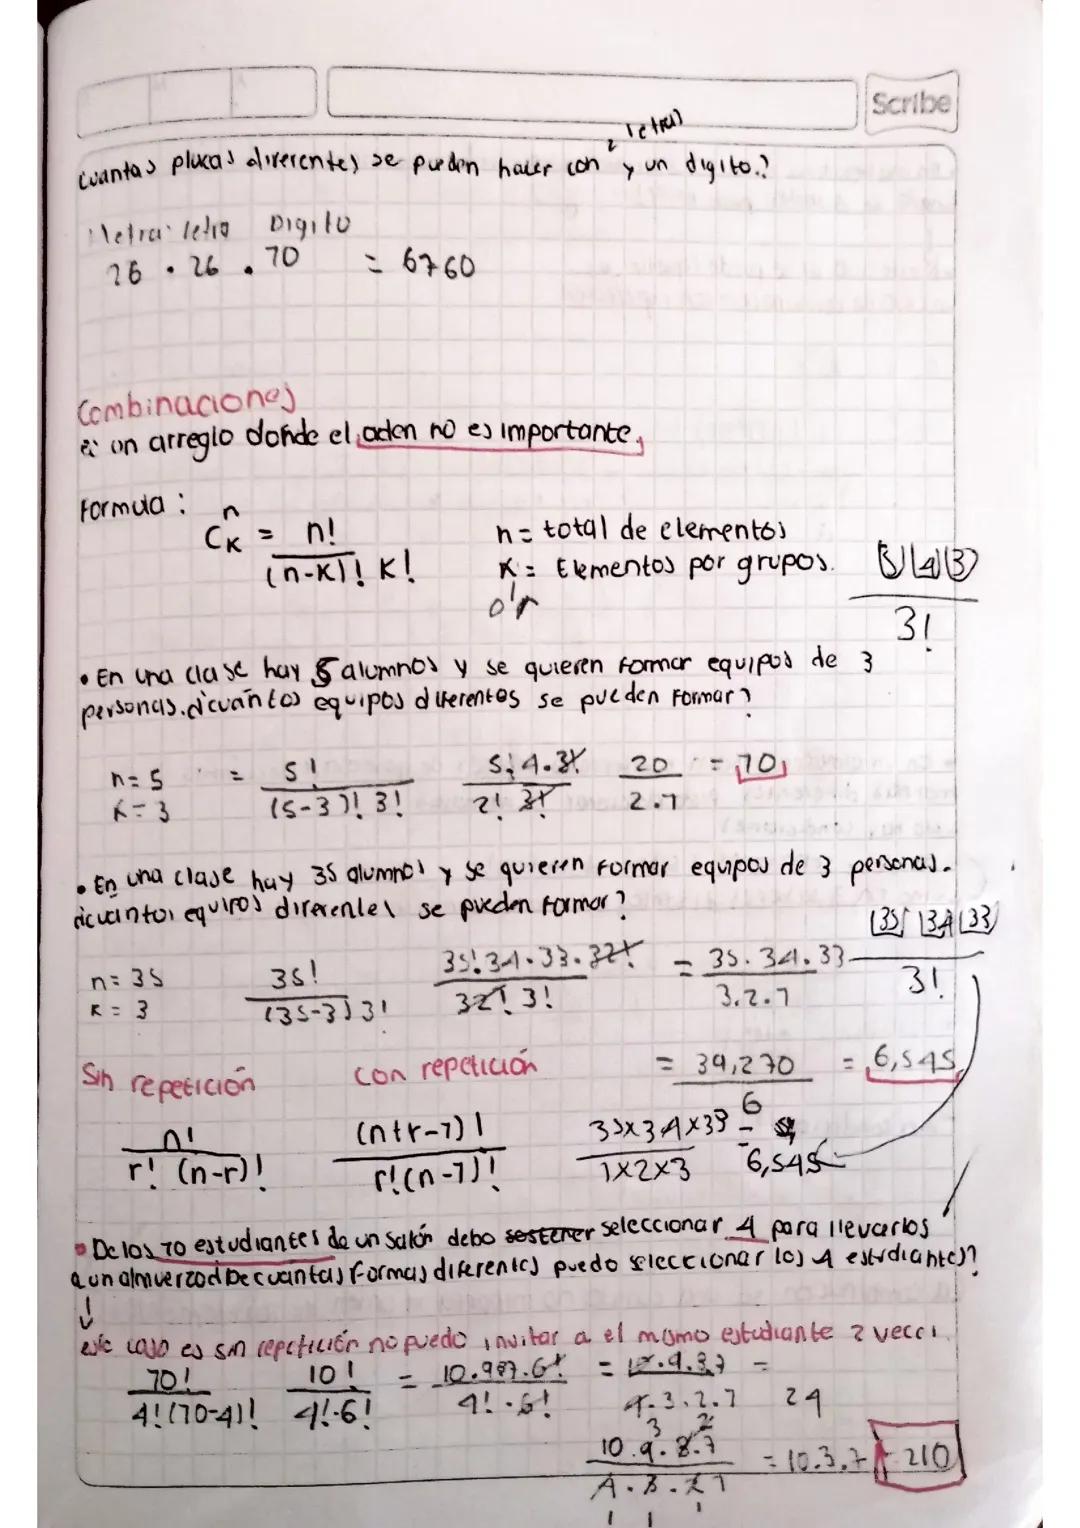 Scribe
2 letras
Cuantas placas diferentes se pueden hacer con y un digito.?
letra letra Digito
26 . 26 . 10 = 6760
Combinaciones
es un arreglo donde el orden no es importante.
Formula :
C n K = n! / (n-K)! K!
n = total de elementos
K = Elementos por grupos.
o r
(5)(4)(3) / 3!
• En una clase hay 5 alumnos y se quieren formar equipos de 3
personas. ¿cuántos equipos diferentes se pueden formar?
n= 5
K= 3
= 5! / (5-3)! 3! 5.4.3! / 2! 3! 20 / 2.1 = 10
• En una clase hay 35 alumnos y se quieren formar equipos de 3 personas.
¿cuantos equipos diferentes se pueden formar?
(35)(34)(33) / 3!
n= 35
K = 3
35! / (35-3)3! 35!34.33.32! / 32! 3! = 35.34.33 / 3.2.1
Sin repetición con repetición = 39,270 / 6 = 6,545
n! / r! (n-r)! (n+r-1)! / r!(n-1)! 35x34x33 / 1x2x3 = 6,545
• De los 10 estudiantes de un salón debo sostener seleccionar 4 para llevarlos
a un almuerzo ¿De cuantas formas diferentes puedo seleccionar los 4 estudiantes?
este caso es sin repetición no puedo invitar a el mismo estudiante 2 veces.
10! / 4!(10-4)! 10! / 4!.6! = 10.987.6! / 4!.6! = 10.9.8.7 / 4.3.2.1 = 24
10.9.8.7 / 4.3.2.1 = 10.3.7 = 210